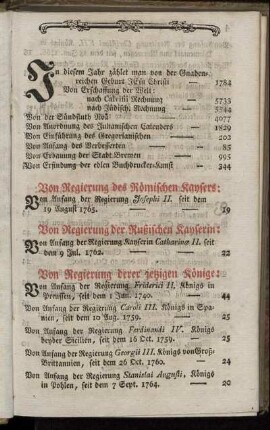 In diesem Jahr zählet man von der Gnaden-
reichen Geburt JEsu Christi — 1784
Von Erschaffung der Welt:
nach Calvisii Rechnung — 5733
nach Jüdisch. Rechnung — 5544
Von der Sündflut Noä — 4077
Von Anordnung des Julianischen Calenders — 1829
Von Einführung des Gregorianischen — 202
Von Anfang des Verbesserten — 85
Von Erbauung der Stadt Bremen — 995
Von Erfindung der edlen Buchdrucker-Kunst — 344
Von Regierung des Römischen Kaysers:
Von Anfang der Regierung Josephi II. seit dem
19 August 1765. — 19
Von Regierung der Rußischen Kayserin:
Von Anfang der Regierung Kayserin Catharina II. seit
dem 9 Jul. 1762. — 22
Von Regierung derer jetzigen Könige:
Von Anfang der Regierung Friderici II. Königs in
Preussen, seit dem 1 Jun. 1740. — 44
Von Anfang der Regierung Caroli III. Königs in Spa-
nien, seit dem 10 Aug. 1759. — 25
Von Anfang der Regierung Ferdinandi IV. Königs
beyder Sicilien, seit dem 16 Oct. 1759. — 25
Von Anfang der Regierung Georgii III. Königs von Groß-
Brittannien, seit dem 26 Oct. 1760. — 24
Von Anfang der Regierung Stanislai Augusti, Königs
in Pohlen, seit dem 7 Sept. 1764. — 20